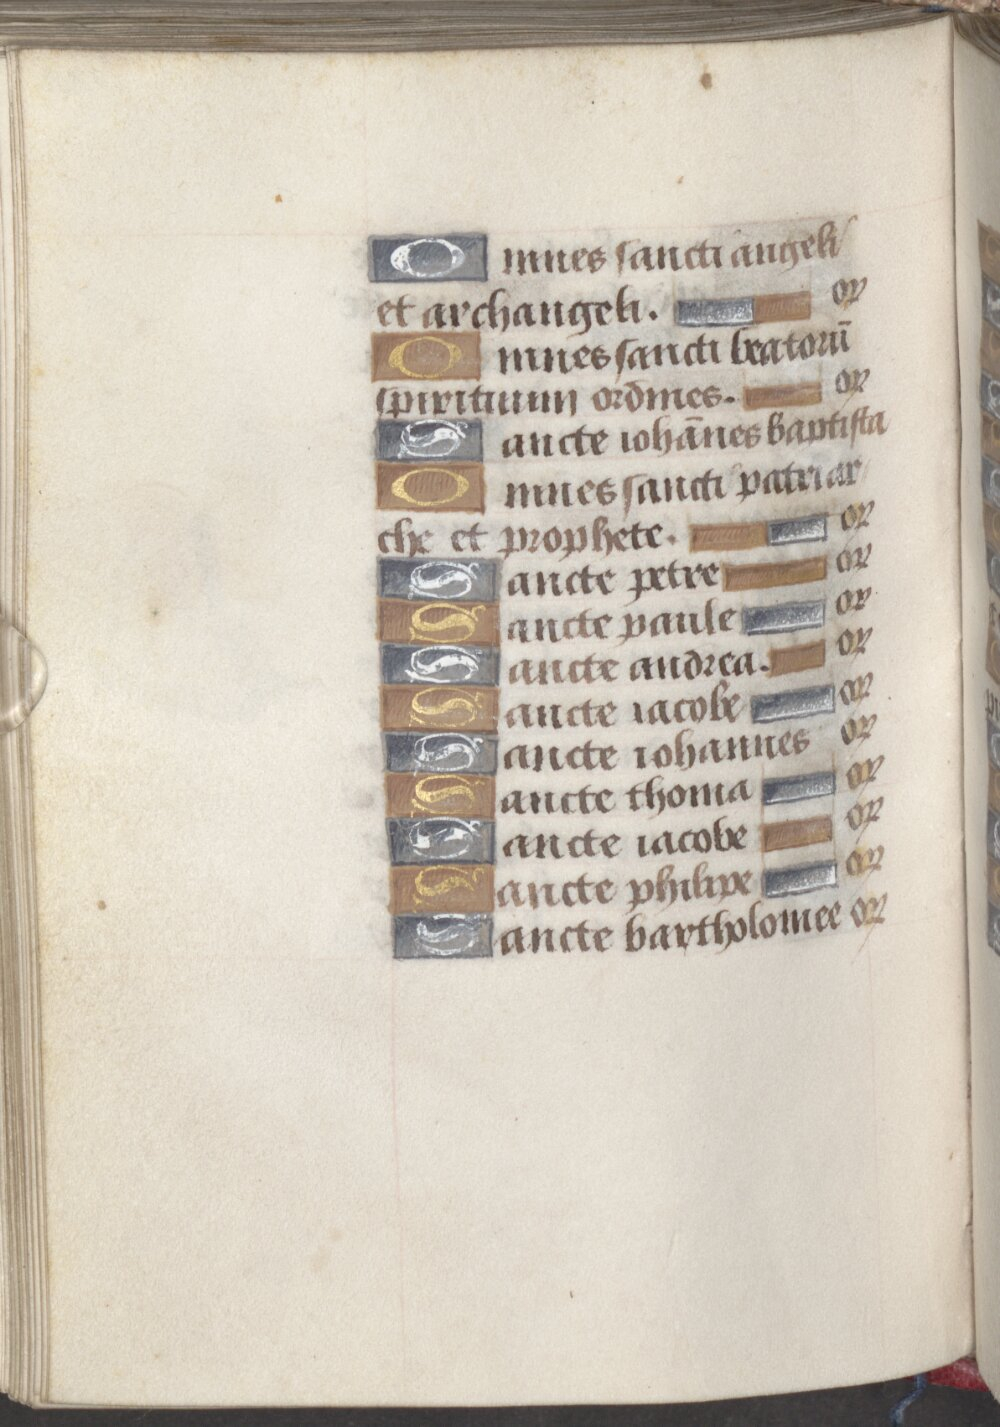 Omnes sancti angeli
et archangeli. or
Omnes sancti beatorū
spirituum ordines. or
Sancte iohānes baptista
Omnes sancti patriar
che et prophete. or
Sancte petre or
Sancte paule or
Sancte andrea. or
Sancte iacobe or
Sancte iohannes or
Sancte thoma or
Sancte iacobe or
Sancte philipe or
Sancte bartholomee or